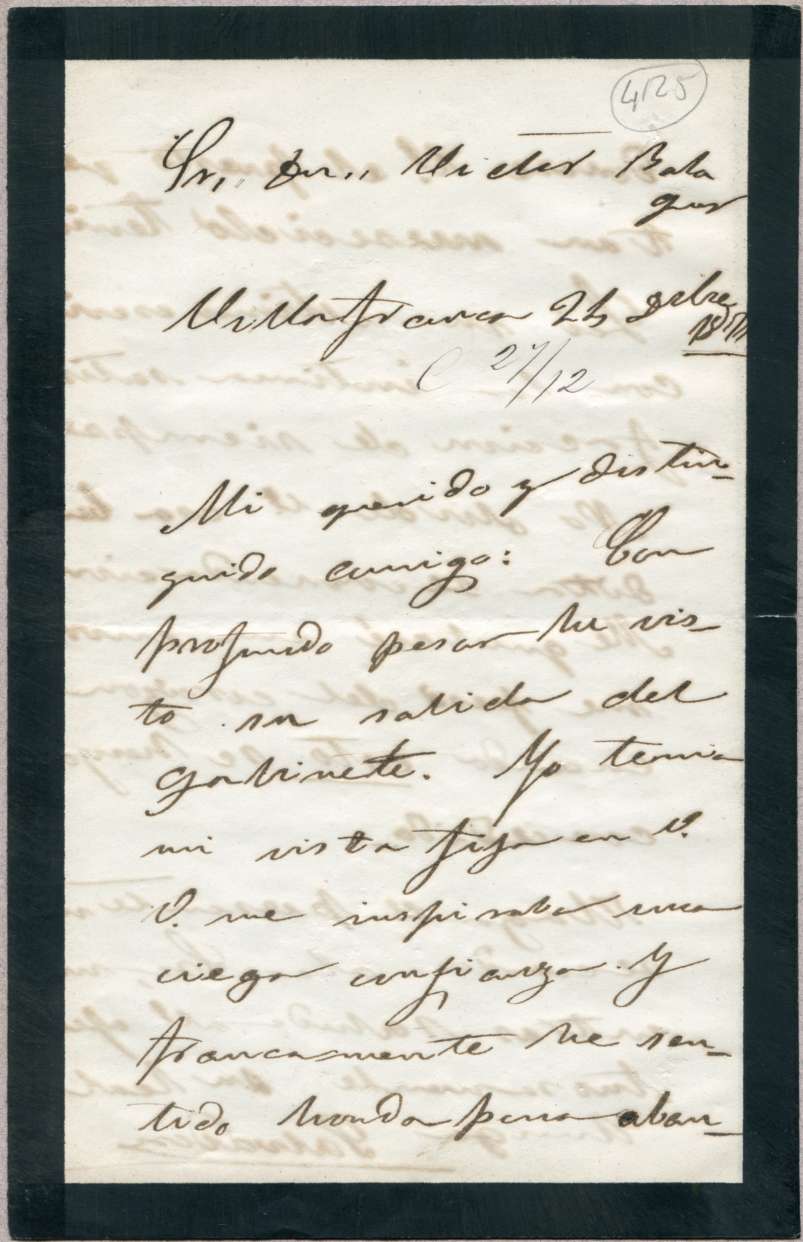 4125
Sr. Dn. Victor Bala
guer
Villafranca 24 Dbre
C 27/12
Mi querido y distin-
guido amigo: Con
profundo pesar he vis-
to su salida del
gabinete. Yo tenia
mi vista fija en V.
V. me inspiraba una
ciega confianza y
francamente he sen-
tido honda pena aban-